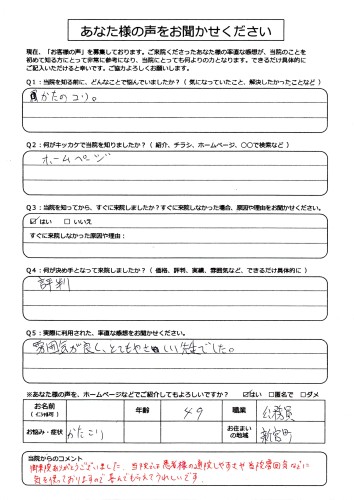 あなた様の声をお聞かせください
現在、「お客様の声」を募集しております。ご来院くださったあなた様の率直な感想が、当院のことを
初めて知る方にとって非常に参考になり、当院にとっても何よりの力となります。できるだけ具体的に
ご記入いただけると幸いです。ご協力よろしくお願いします。
Q1：当院を知る前に、どんなことで悩んでいましたか？（気になっていたこと、解決したかったことなど）
肩かたのコリ。
Q2：何がキッカケで当院を知りましたか？（紹介、チラシ、ホームページ、〇〇で検索など）
ホームページ
Q3：当院を知ってから、すぐに来院しましたか？すぐに来院しなかった場合、原因や理由をお聞かせください。
☑はい □いいえ
すぐに来院しなかった原因や理由：
Q4：何が決め手となって来院しましたか？（価格、評判、実績、雰囲気など、できるだけ具体的に）
評判
Q5：実際に利用された、率直な感想をお聞かせください。
雰囲気が良く、とてもやさしい先生でした。
※あなた様の声を、ホームページなどでご紹介してもよろしいですか？ ☑はい □匿名で □ダメ
お名前 年齢 49 職業 公務員
お悩み・症状 かたこり お住まいの地域 新宮町
当院からのコメント
御来院ありがとうございました。当院では患者様の通院しやすさや当院雰囲気などに
気を使っておりますので喜んでもらえてうれしいです。